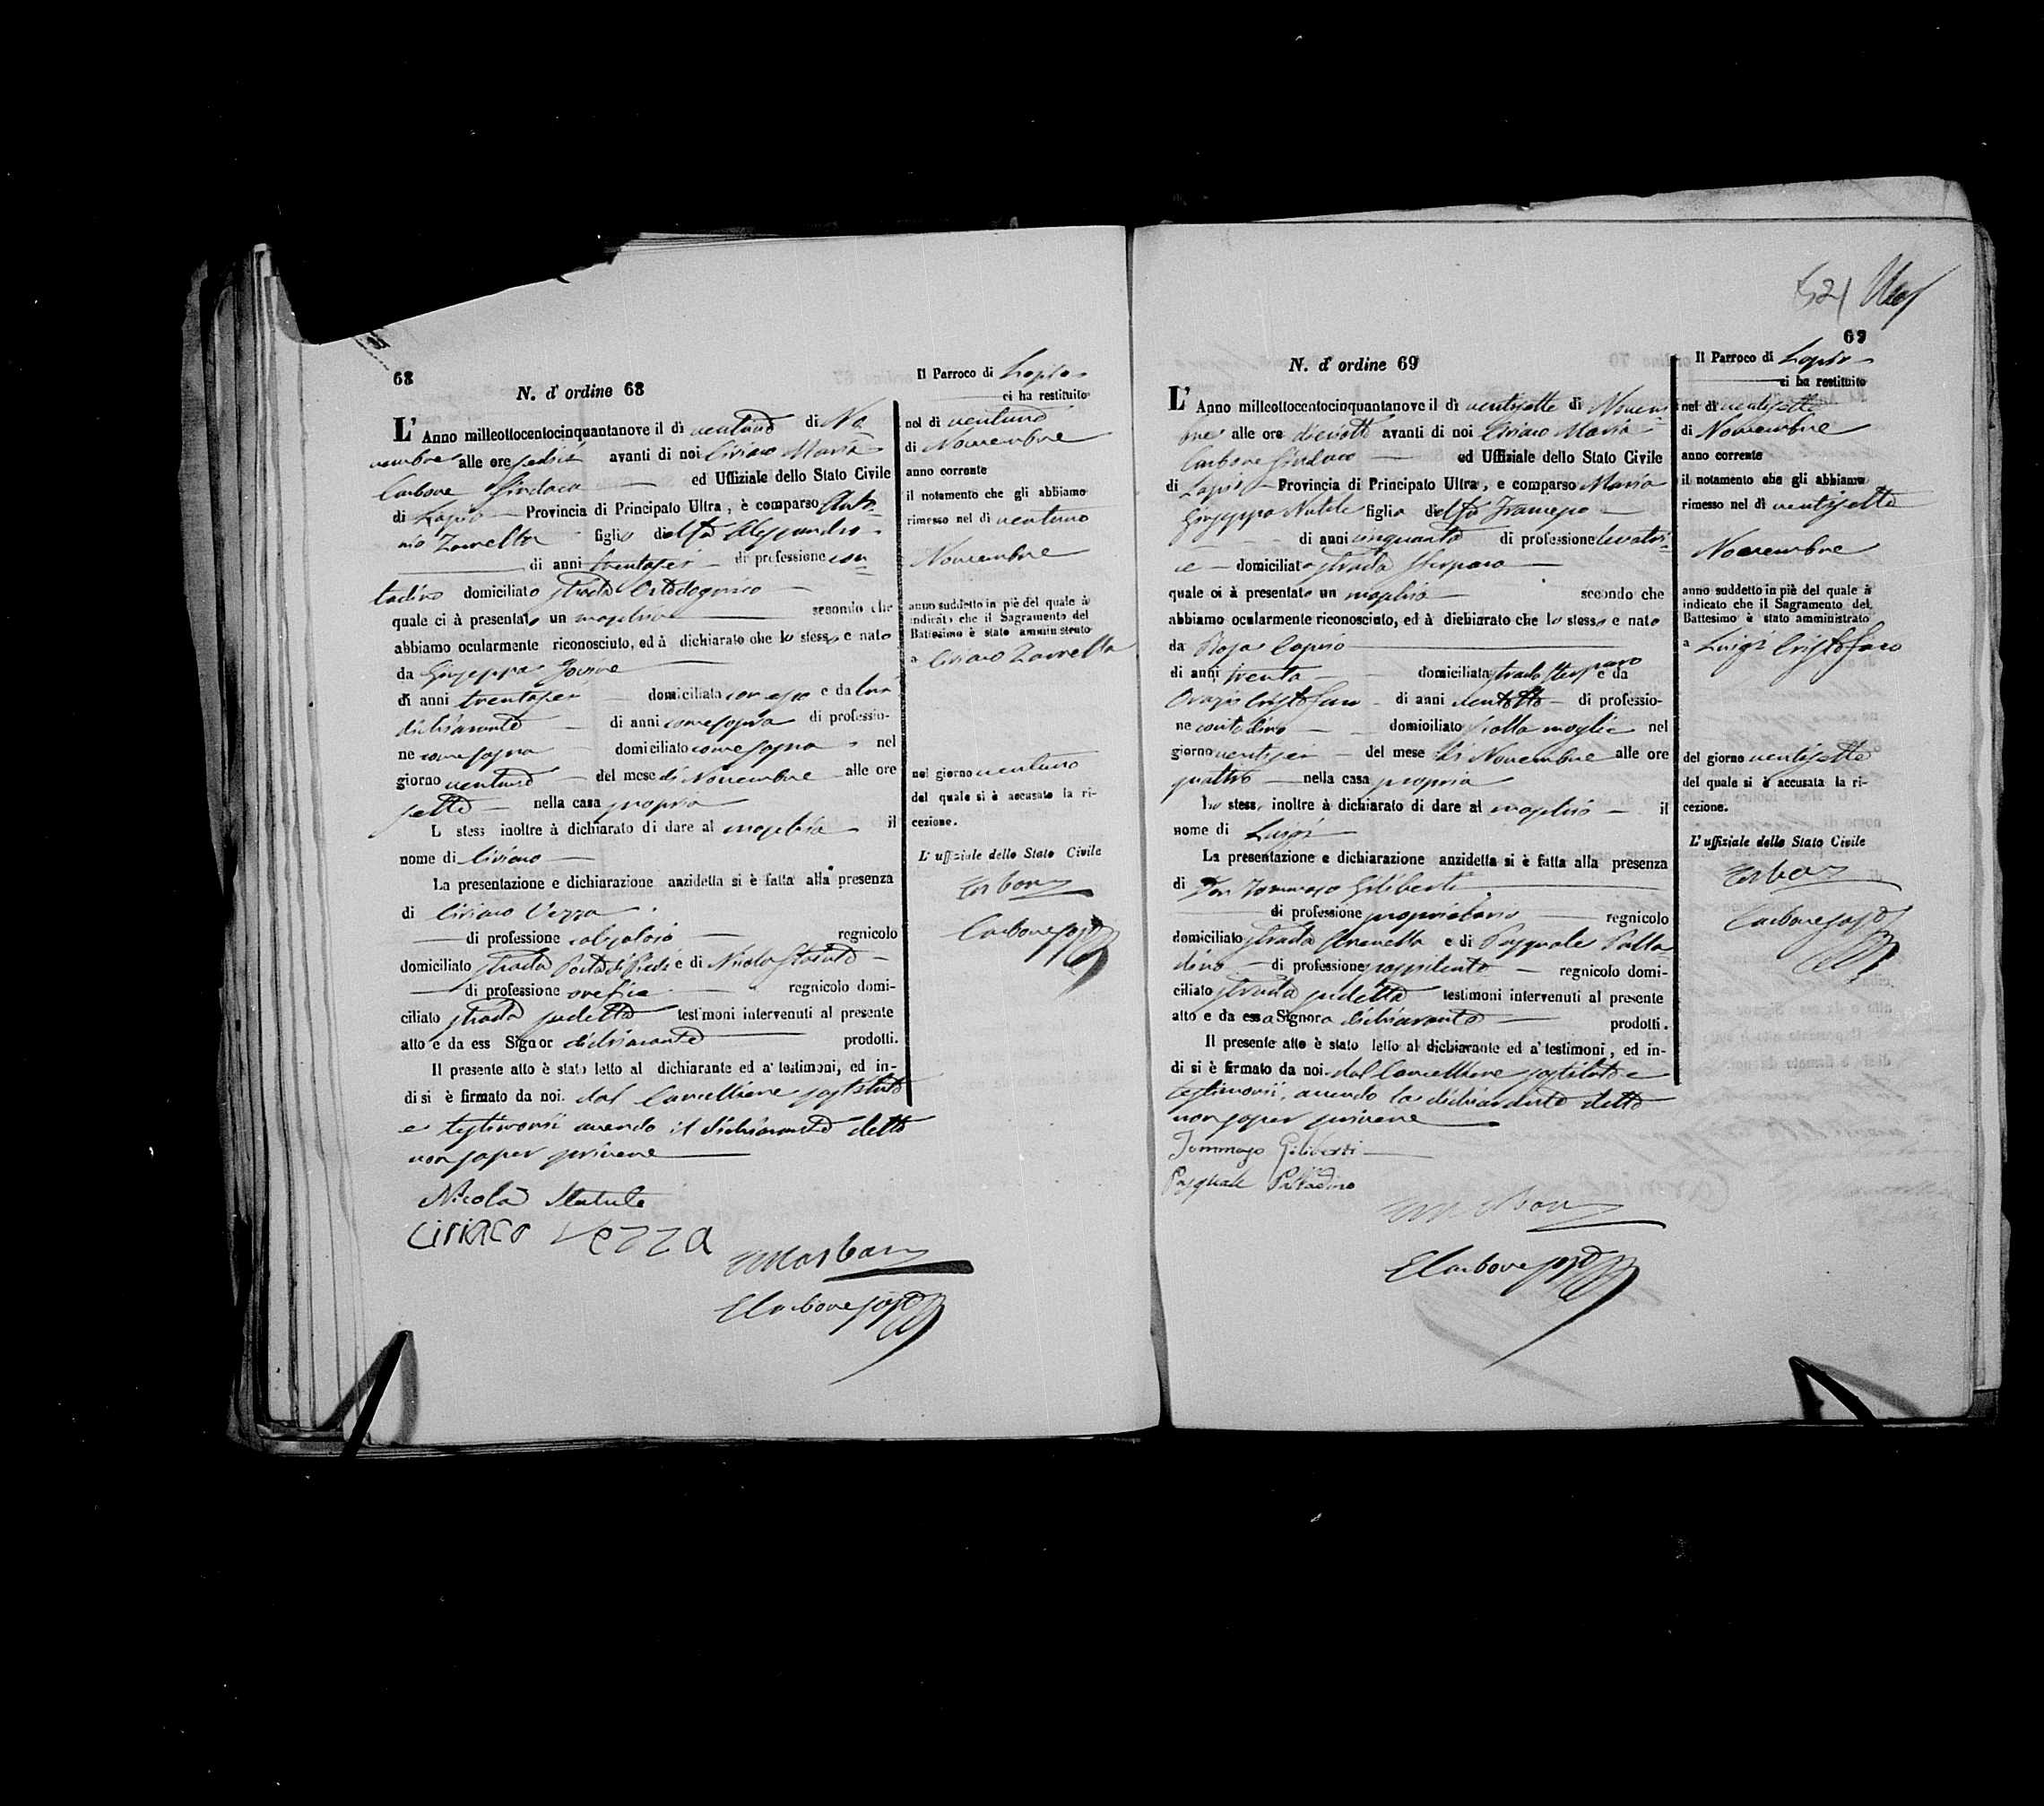 68
N. d' ordine 68
L' Anno milleottocentocinquantanove il dì ventuno di No=
vembre alle ore sedici avanti di noi Ciriaco Maria
Carbone Sindaco ed Uffiziale dello Stato Civile
di Lapio Provincia di Principato Ultra, è comparso Anto=
nio Zarrella figlio del fu Alessandro
di anni trentasei di professione con=
tadino domiciliato strada
quale ci à presentato un maschio secondo che
abbiamo ocularmente riconosciuto, ed à dichiarato che lo stesso e nato
da Giuseppa
di anni trentasei domiciliata con esso e da lui
dichiarante di anni come sopra di professio-
ne come sopra domiciliato come sopra nel
giorno ventuno del mese di Novembre alle ore
sette nella casa propria
L stess inoltre à dichiarato di dare al maschio il
nome di Ciriaco
La presentazione e dichiarazione anzidetta si è fatta alla presenza
di Ciriaco Vezza
di professione calzolaio regnicolo
domiciliato strada e di Nicola Statuto
di professione orefice regnicolo domi-
ciliato strada sudetta testimoni intervenuti al presente
atto e da ess Signor dichiarante prodotti.
Il presente atto è stato letto al dichiarante ed a' testimoni, ed in-
di si è firmato da noi dal Cancelliere sostituto
e testimonii avendo il dichiarante detto
non saper scrivere
Nicola Statuto
Ciriaco Vezza
Carbone
Il Parroco di Lapio
ci ha restituito
nel di ventuno
di Novembre
anno corrente
il notamento che gli abbiamo
rimesso nel dì ventuno
Novembre
anno suddetto in piè del quale à
indicato che il Sagramento del
Battesimo è stato amministrato
a Ciriaco Zarrella
nel giorno ventuno
del quale si è accusato la ri-
cezione.
L' uffiziale dello Stato Civile
Carbone
69
N. d' ordine 69
L' Anno milleottocentocinquantanove il dì ventisette di Novem=
bre alle ore dieciotto avanti di noi Ciriaco Maria
Carbone Sindaco ed Uffiziale dello Stato Civile
di Lapio Provincia di Principato Ultra, e comparso Maria
Giuseppa figlia del fu
di anni cinquanta di professione levatri=
ce domiciliata strada
quale ci à presentato un maschio secondo che
abbiamo ocularmente riconosciuto, ed à dichiarato che lo stesso e nato
da Rosa
di anni trenta domiciliata strada e da
Orazio Cristofaro di anni ventotto di professio-
ne contadino domiciliato colla moglie nel
giorno ventisei del mese di Novembre alle ore
quattro nella casa propria
Lo stess, inoltre à dichiarato di dare al maschio il
nome di Luigi
La presentazione e dichiarazione anzidetta si è fatta alla presenza
di Don Tommaso Giliberti
di professione proprietario regnicolo
domiciliato strada e di Pasquale Palla=
dino di professione regnicolo domi-
ciliato strada sudetta testimoni intervenuti al presente
atto e da essa Signora dichiarante prodotti.
Il presente atto è stato letto al dichiarante ed a' testimoni, ed in-
di si è firmato da noi dal Cancelliere sostituto e
testimonii, avendo la dichiarante detto
non saper scrivere
Tommaso Giliberti
Pasquale Palladino
Carbone
Il Parroco di Lapio
ci ha restituito
nel dì ventisette
di Novembre
anno corrente
il notamento che gli abbiamo
rimesso nel dì ventisette
Novembre
anno suddetto in piè del quale à
indicato che il Sagramento del
Battesimo è stato amministrato
a Luigi Cristofaro
del giorno ventisette
del quale si è accusata la ri-
cezione.
L' uffiziale dello Stato Civile
Carbone